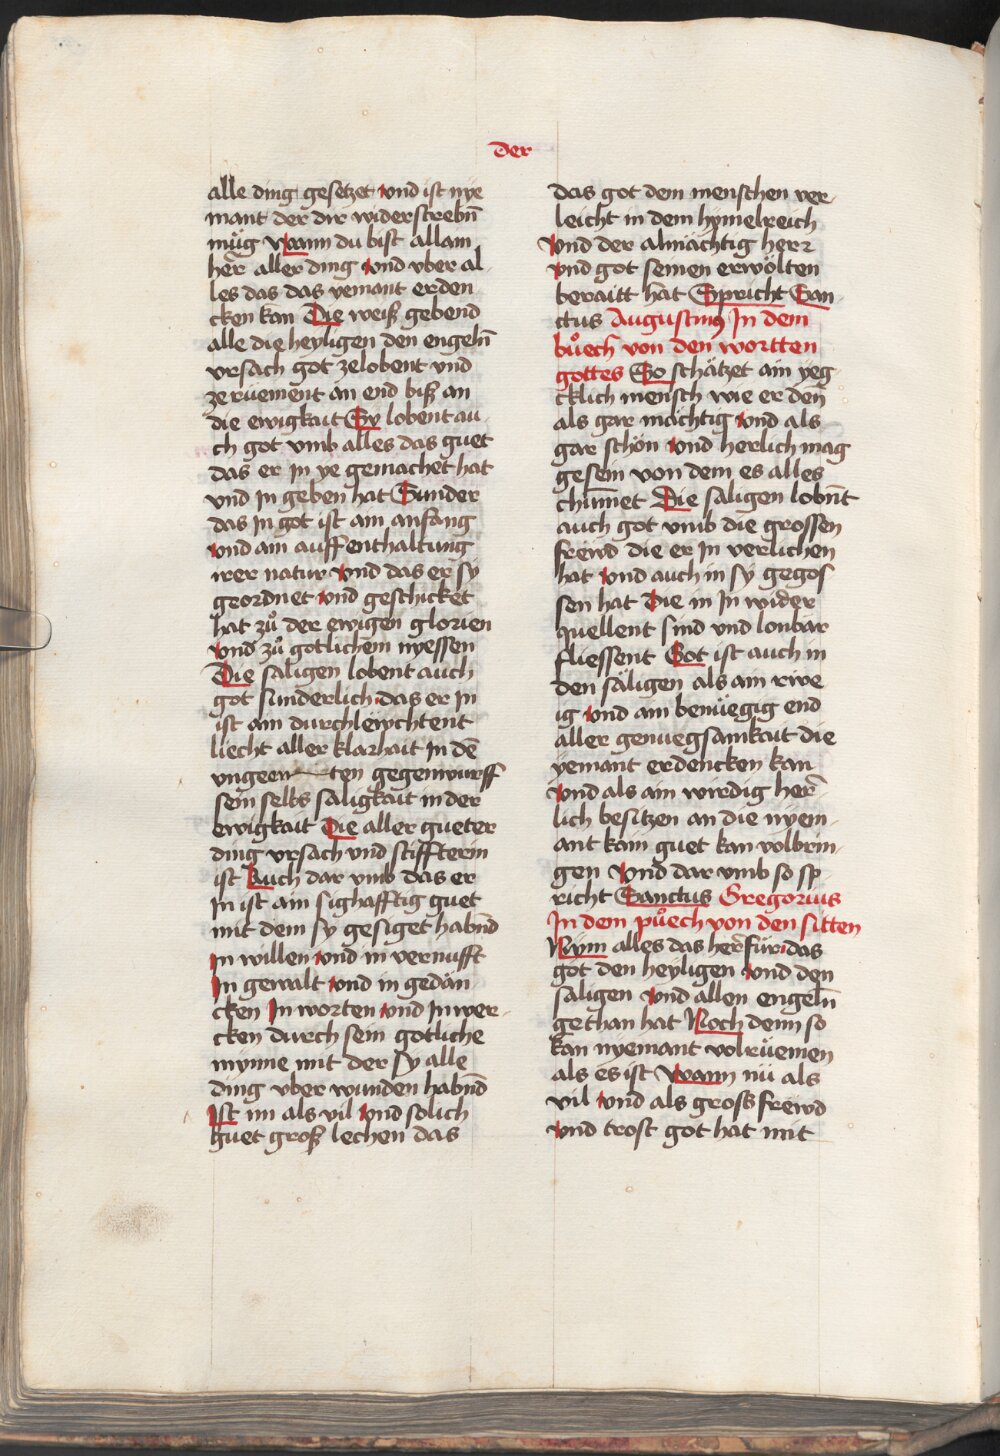 der
alle ding gesetzet vnd ist nye
mant der dir widerstrebn̄
müg Wann du bist allain
her̄ aller ding vnd vber al
les das das yemant erden
cken kan Die weiß gebend
alle die heyligen den engeln̄
vrsach got zelobent vnd
ze rüement an end biß an
die ewigkait Sy lobent au
ch got vmb alles das guet
das er In ye gemachet hat
vnd In geben hat Sunder
das In got ist ain anfang
vnd ain auffenthaltung
irer natur vnd das er sy
geordnet vnd geschicket
hat zů der ewigen glorien
vnd zů gotlichem nyessen
Die saligen lobent auch
got sunderlich das er In
ist ain durchlewchtent
liecht aller klarhait In dē
vngeen ten gegenwurff
sein selbs saligkait in der
ewigkait Die aller gueter
ding vrsach vnd stiffterin
ist Auch dar vmb das er
In ist ain sighafftig guet
mit dem sy gesiget habn̄d
In willen vnd in vernufft
In gewalt vnd in gedän
cken In worten vnd In wer
cken durch sein gotliche
mynne mit der sy alle
ding vber wunden habn̄d
Ist im als vil vnd solich
guet groß lechen das
das got dem menschen ver
leicht in dem hymelreich
vnd der almächtig herr
vnd got seinen erwölten
beraitt hat Spricht San
ctus Augustinus In dem
bůech von den wortten
gottes So schätzet ain yeg
cklich mensch wie er den
als gar mächtig vnd als
gar schön vnd herlich mag
gesein von dem es alles
chūmet Die saligen lobn̄t
auch got vmb die grossen
frewd die er In verlichen
hat vnd auch in sy gegos
sen hat Die in In wider
quellent sind vnd lonbar
fliessent Got ist auch in
den säligen als ain rwe
ig vnd ain benüegig end
aller genuegsamkait die
yemant erdencken kan
vnd als ain wirdig her̄
lich besitzen an die nyem
ant kain guet kan volbrin
gen Vnd dar vmb so sp
richt Sanctus Gregorius
In dem půech von den sitten
Nym alles das her̄ für das
got den heyligen vnd den
saligen vnd allen engeln̄
gethan hat Noch denn so
kan nyemant volrüemen
als es ist Wann nü als
vil vnd als gross frewd
vnd trost got hat mit